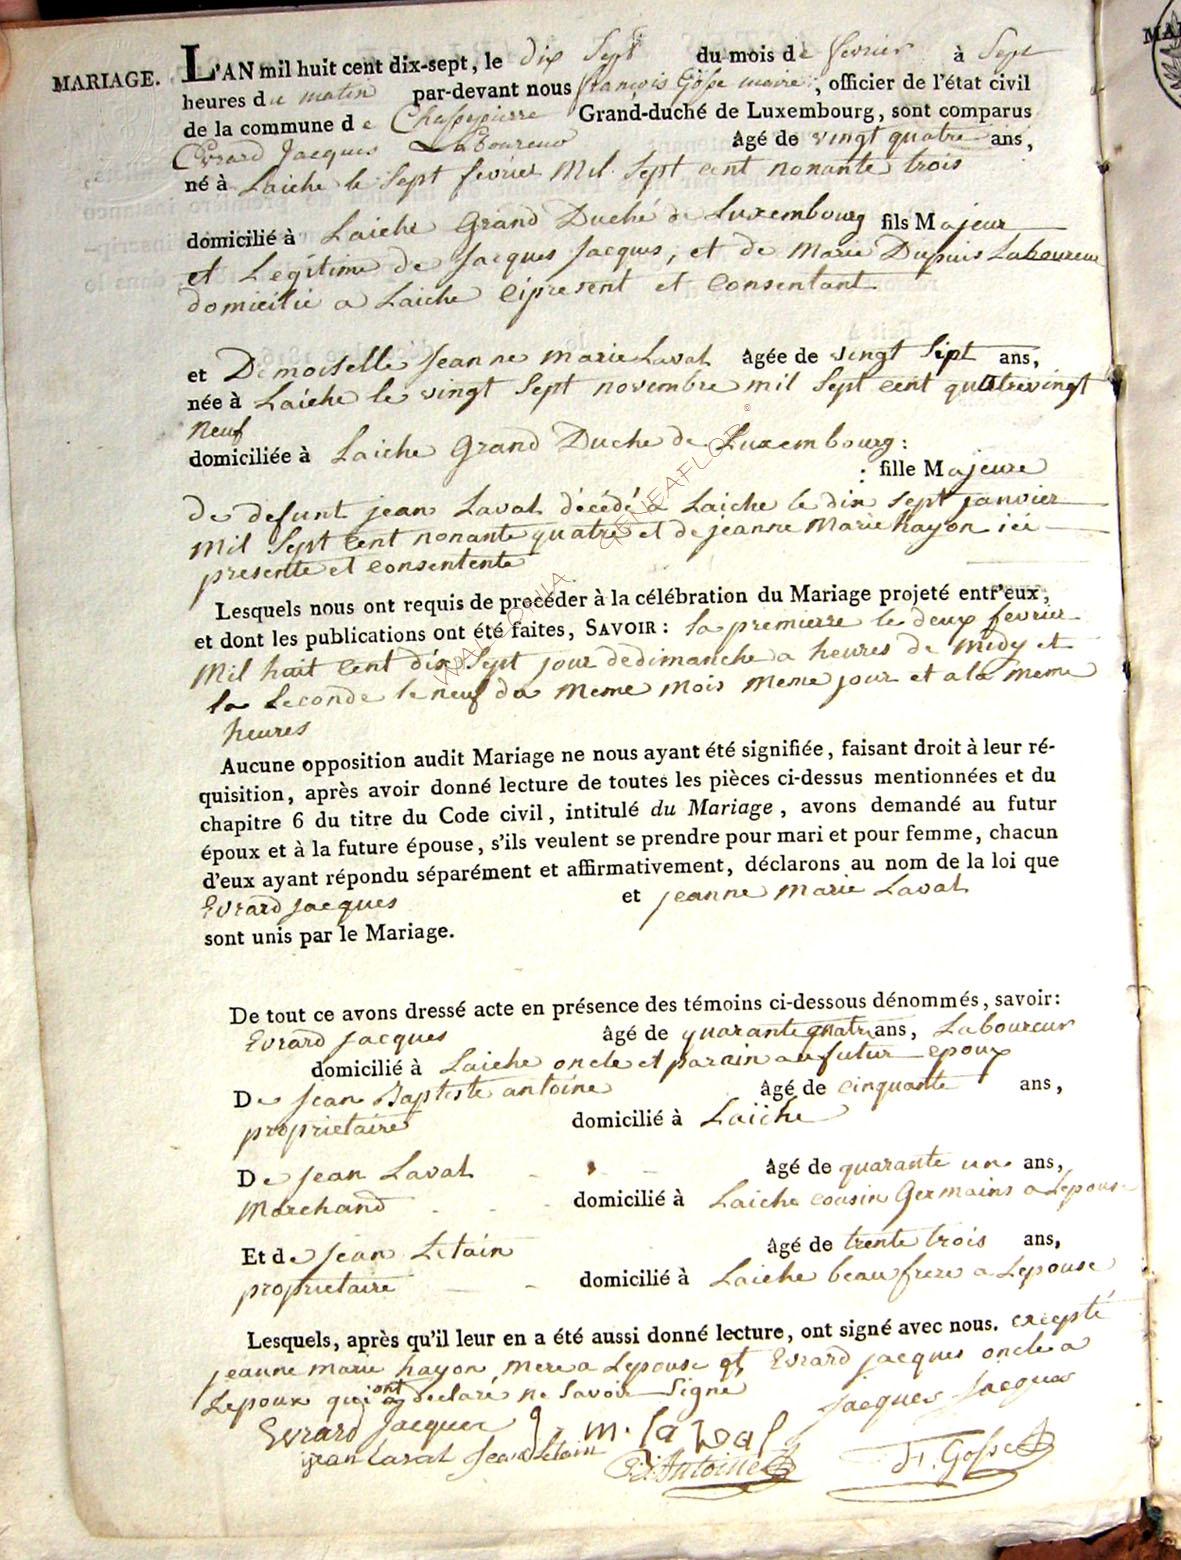 MARIAGE. L'AN mil huit cent dix-sept, le dix Sept du mois de fevrier à Sept
heures du matin par-devant nous françois Gosse maire, officier de l'état civil
de la commune de Chassepierre Grand-duché de Luxembourg, sont comparus
Evrard Jacques Laboureur âgé de vingt quatre ans,
né à Laiche le Sept fevrier Mil Sept cent nonante trois
domicilié à Laiche Grand Duché de Luxembourg fils Majeur
et Legitime de Jacques Jacques, et de Marie Dupuis Laboureur
domicilié a Laiche cipresent et Consentant
et Demoiselle Jeanne marie Laval âgée de vingt Sept ans,
née à Laiche le vingt Sept novembre mil Sept cent quatrevingt
neuf
domiciliée à Laiche Grand Duche de Luxembourg:
: fille Majeure
De defunt jean Laval décédé a Laiche le dix sept janvier
Mil Sept Cent nonante quatre et de jeanne Marie hayon ici
presente et consentente
Lesquels nous ont requis de procéder à la célébration du Mariage projeté entr'eux,
et dont les publications ont été faites, SAVOIR: la premierre le deux fevrier
Mil huit Cent dix Sept jour dedimanche a heures de Midy et
la Seconde le neuf du Meme Mois Meme jour et a la meme
heures
Aucune opposition audit Mariage ne nous ayant été signifiée, faisant droit à leur ré-
quisition, après avoir donné lecture de toutes les pièces ci-dessus mentionnées et du
chapitre 6 du titre du Code civil, intitulé du Mariage, avons demandé au futur
époux et à la future épouse, s'ils veulent se prendre pour mari et pour femme, chacun
d'eux ayant répondu séparément et affirmativement, déclarons au nom de la loi que
Evrard jacques et jeanne Marie Laval
sont unis par le Mariage.
De tout ce avons dressé acte en présence des témoins ci-dessous dénommés, savoir:
Evrard jacques âgé de quarante quatre ans, Laboureur
domicilié à Laiche oncle et parain au futur epoux
De Jean Baptiste antoine âgé de cinquante ans,
proprietaire domicilié à Laiche
De jean Laval âgé de quarante un ans,
Marchand domicilié à Laiche cousin Germains a Lepouse
Et de Jean Letain âgé de trente trois ans,
proprietaire domicilié à Laiche beau frere a Lepouse
Lesquels, après qu'il leur en a été aussi donné lecture, ont signé avec nous. excepté
jeanne marie hayon mere a Lepouse et Evrard jacques oncle a
Lepoux qui ont declaré ne Savoir Signé
Evrard Jacques J. m. laval Jacques Jacques
jean Laval Jean Letain Antoine F. Gosse
WALLONIA GENEAFLOR ©
MA